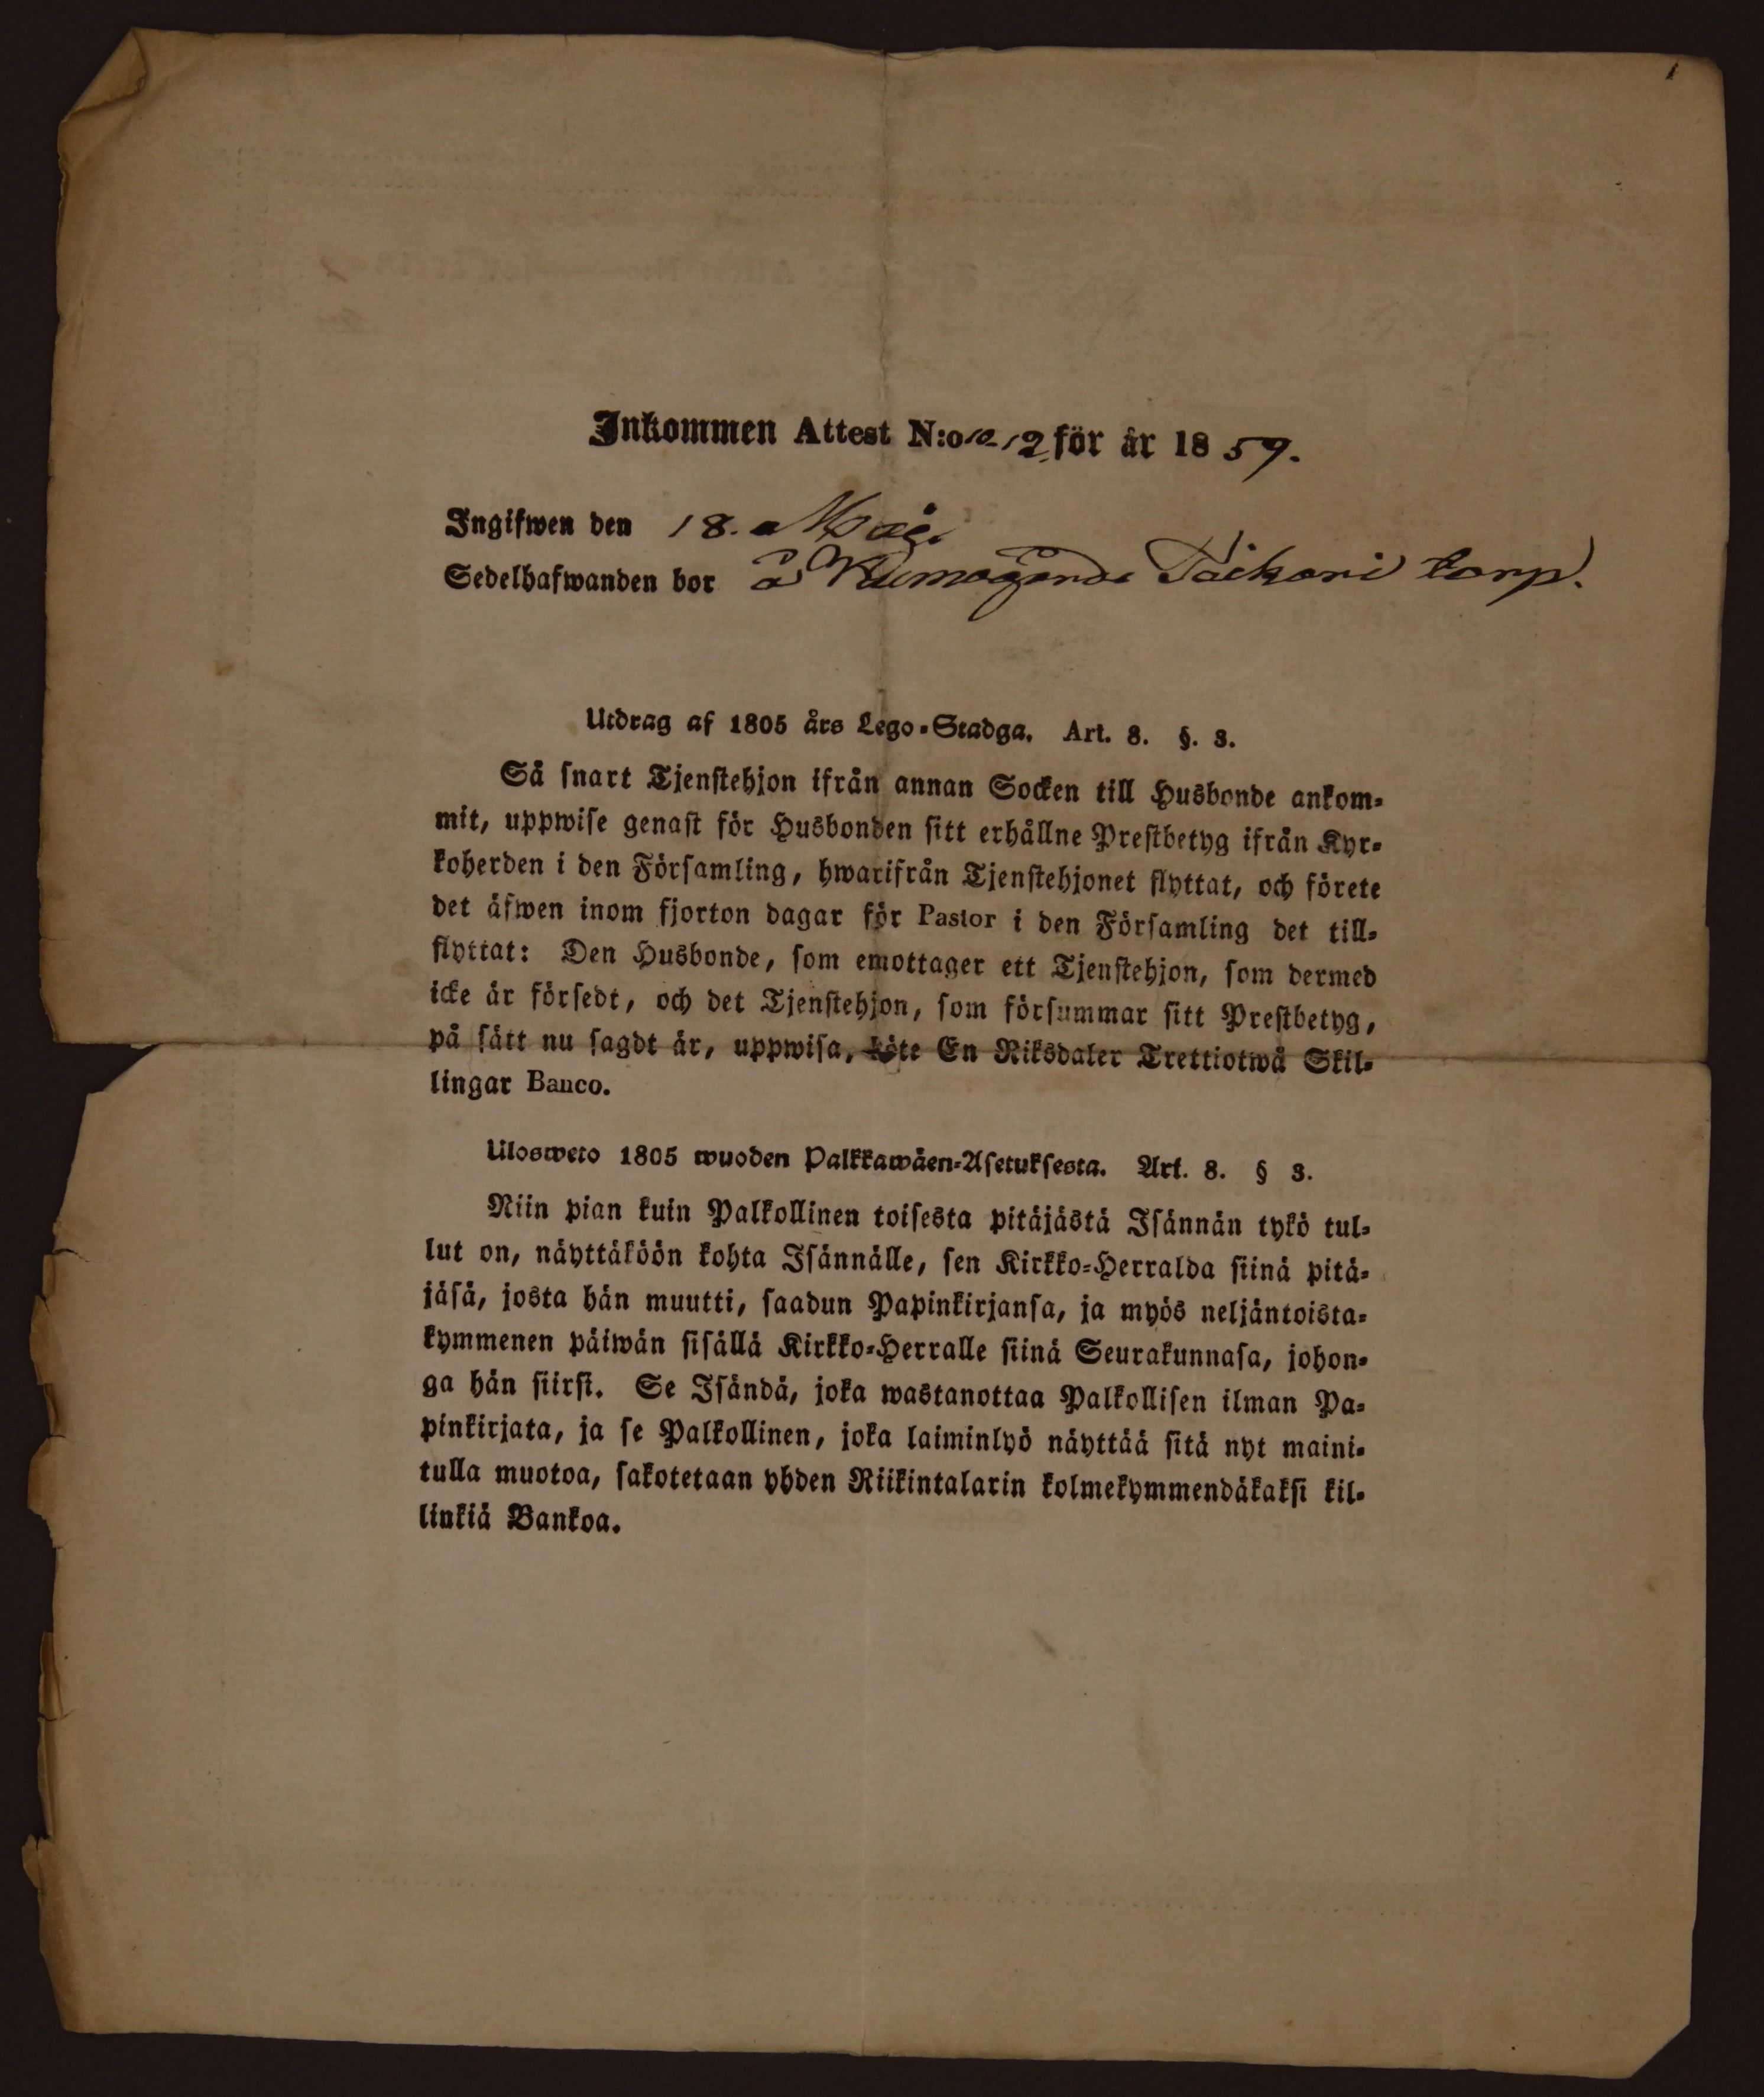 Inkommen Attest N:o 12 för år 1859.
Ingifwen den 18. Maj.
Sedelhafwanden bor å Kumogårds torp.
Utdrag af 1805 års Lego-Stadga. Art. 8. §. 3.
Så snart Tjenstehjon ifrån annan Socken till Husbonde ankom-
mit, uppwise genast för Husbonden sitt erhållne Prestbetyg ifrån Kyr-
koherden i den Församling, hwarifrån Tjenstehjonet flyttat, och förete
det äfwen inom fjorton dagar för Pastor i den Församling det till-
flyttat: Den Husbonde, som emottager ett Tjenstehjon, som dermed
icke är försedt, och det Tjenstehjon, som försummar sitt Prestbetyg,
på sätt nu sagdt är, uppwisa, böte En Riksdaler Trettiotwå Skil-
lingar Banco.
Ulosweto 1805 wuoden Palkkawäen-Asetuksesta. Art. 8. § 3.
Niin pian kuin Palkollinen toisesta pitäjästä Isännän tykö tul-
lut on, näyttäköön kohta Isännälle, sen Kirkko-Herralda siinä pitä-
jäsä, josta hän muutti, saadun Papinkirjansa, ja myös neljäntoista-
kymmenen päiwän sisällä Kirkko-Herralle siinä Seurakunnasa, johon-
ga hän siirsi. Se Isändä, joka wastanottaa Palkollisen ilman Pa-
pinkirjata, ja se Palkollinen, joka laiminlyö näyttää sitä nyt maini-
tulla muotoa, sakotetaan yhden Riikintalarin kolmekymmendäkaksi kil-
linkiä Bankoa.